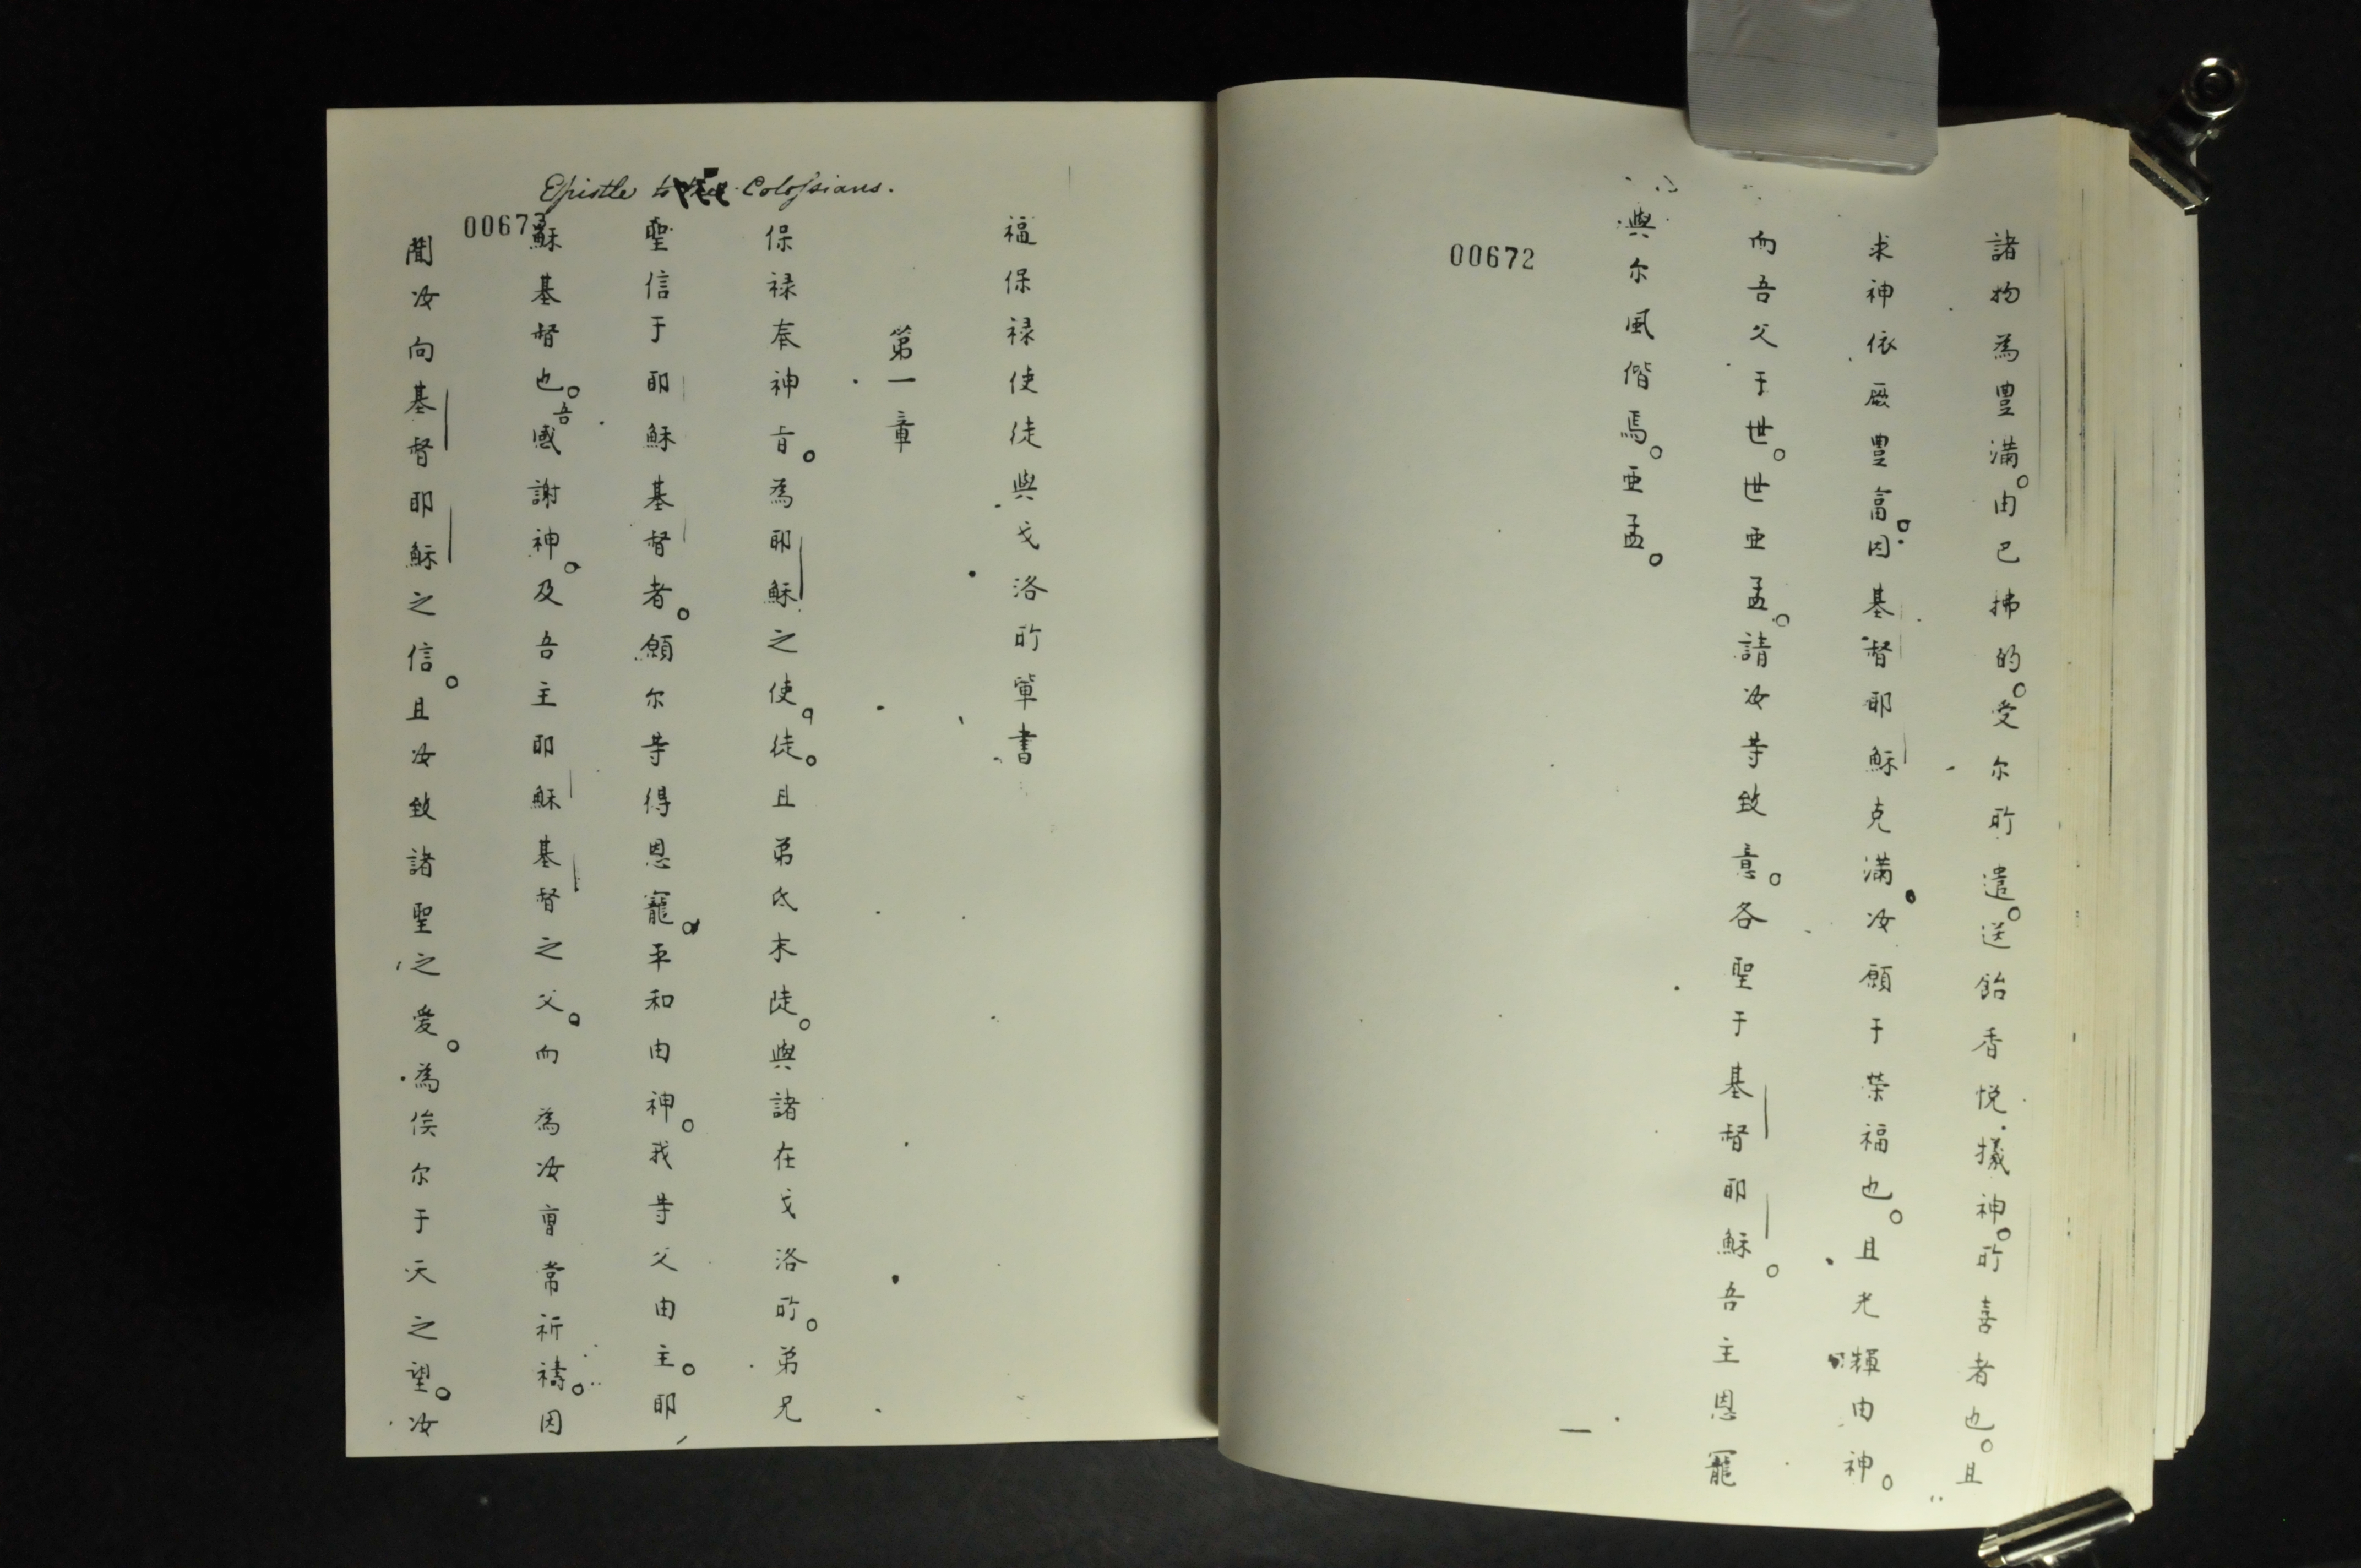 諸物為豊滿。由巴拂的。受尔所遣。送飴香悦擬神。所喜者也。且
求神依厥豊富。因基督耶穌克滿。汝願于荣福也。且光輝由神。
而吾父于世。世世亜孟。請汝等致意。各聖于基督耶穌。吾主恩寵
與尔風偕焉。亜孟。
00672
Epistle to the Colossians.
福保禄使徒與戈洛所輩書
第一章
保禄奉神旨。為耶穌之使。徒。且弟氐末陡。與諸在戈洛所。弟兄
聖信于耶穌基督者。願尔等得恩寵。平和由神。我等父由主。耶
穌基督也。吾感謝神。及吾主耶穌基督之父。而為汝曺常祈禱。因
聞汝向基督耶穌之信。且汝致諸聖之愛。為俟尔于天之望。汝
00673